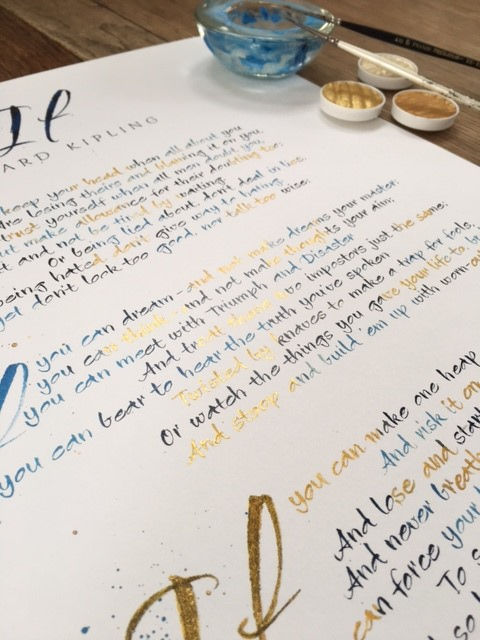 If
ARD KIPLING
keep your head when all about you
re losing theirs and blaming it on you,
trust yourself when all men doubt you,
t make allowance for their doubting too;
t and not be tired by waiting,
Or being lied about, don't deal in lies,
being hated, don't give way to hating,
yet don't look too good, nor talk too wise:
you can dream - and not make dreams your master;
you can think - and not make thoughts your aim;
you can meet with Triumph and Disaster
And treat those two impostors just the same;
you can bear to hear the truth you've spoken
Twisted by knaves to make a trap for fools,
Or watch the things you gave your life to
And stoop and build 'em up with worn-
If you can make one heap
And risk it on
And lose and star
And never breath
can force your
To s
so
If